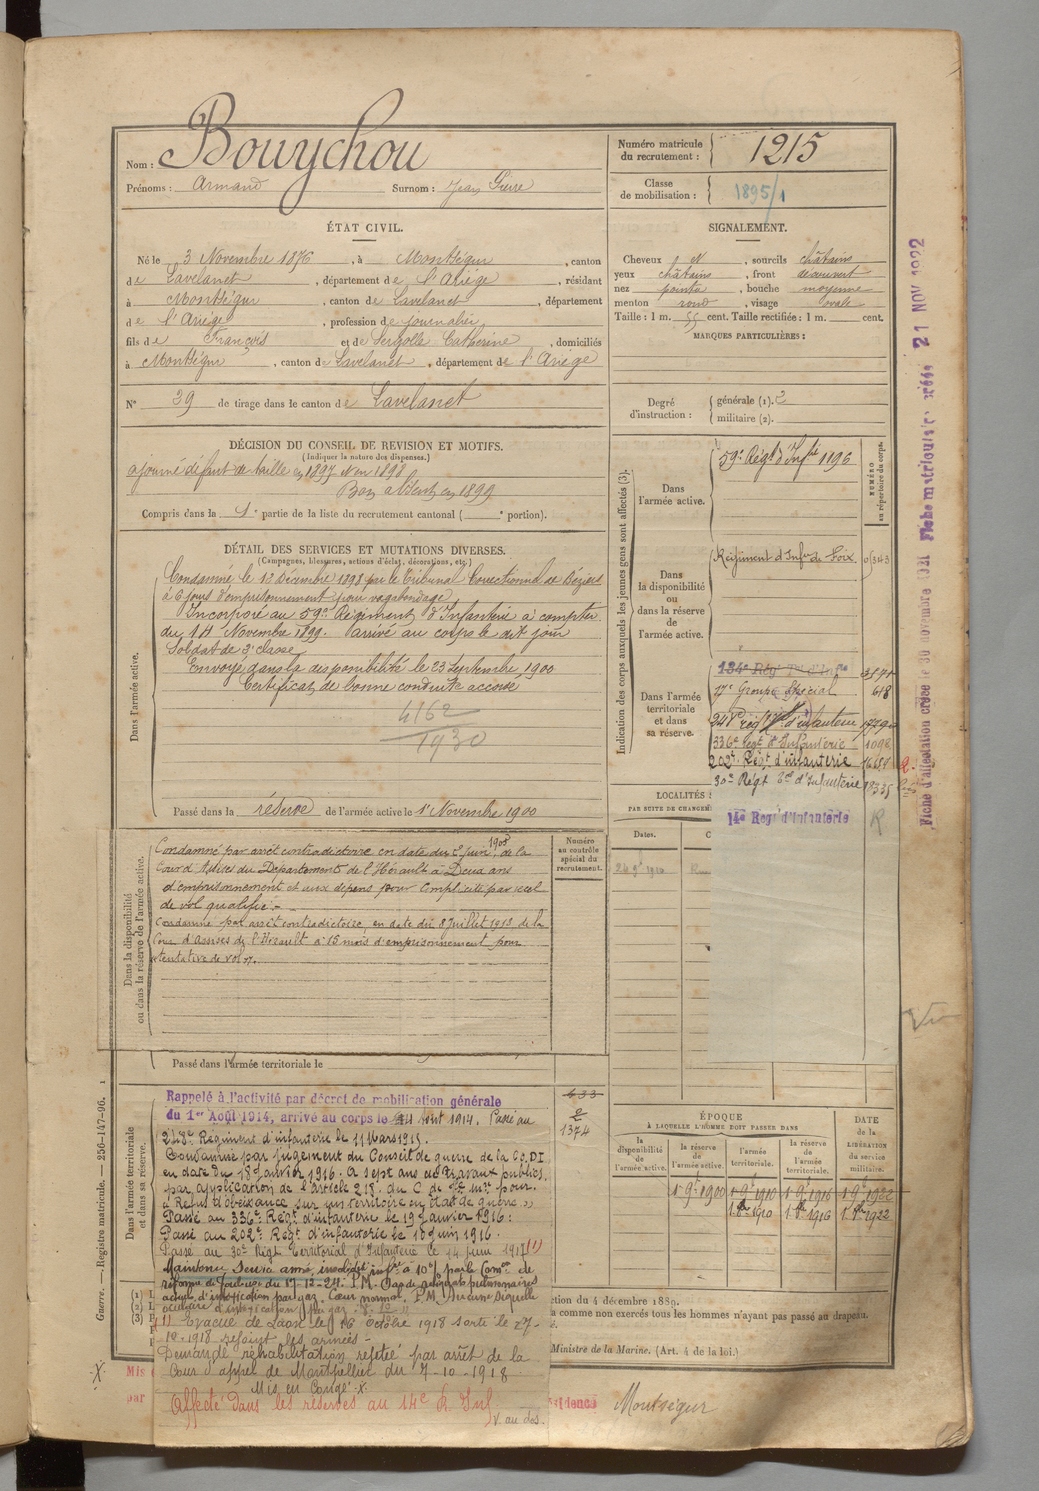 Nom : Bouychou
Prénoms : Armand Surnom : Jean Pierre
Numéro matricule du recrutement : 1215
Classe de mobilisation : 1895/1
ÉTAT CIVIL.
Né le 3 Novembre 1876, à Montségur, canton
de Lavelanet, département de l'Ariège, résidant
à Montségur, canton de Lavelanet, département
de l'Ariège, profession de journalier
fils de François et de Serzolle Catherine, domiciliés
à Montségur, canton de Lavelanet, département de l'Ariège
N° 39 de tirage dans le canton de Lavelanet
SIGNALEMENT.
Cheveux N, sourcils châtains
yeux châtains, front découvert
nez pointu, bouche moyenne
menton rond, visage ovale
Taille : 1 m. 55 cent. Taille rectifiée : 1 m. cent.
MARQUES PARTICULIÈRES :
Degré d'instruction : générale (1). 2
militaire (2).
DÉCISION DU CONSEIL DE REVISION ET MOTIFS.
(Indiquer la nature des dispenses.)
ajourné défaut de taille en 1897 & en 1898
Bon absent en 1899
Compris dans la 1e partie de la liste du recrutement cantonal ( e portion).
DÉTAIL DES SERVICES ET MUTATIONS DIVERSES.
(Campagnes, blessures, actions d'éclat, décorations, etc.)
Dans l'armée active.
Condamné le 12 Décembre 1898 par le Tribunal Correctionnel de Béziers
à 6 jours d'emprisonnement pour vagabondage
Incorporé au 59e Régiment d'Infanterie à compter
du 14 Novembre 1899. Arrivé au corps le dit jour
Soldat de 2e classe
Envoyé dans la disponibilité le 23 Septembre 1900
Certificat de bonne conduite accordé
4162
1930
Passé dans la réserve de l'armée active le 1er Novembre 1900
Indication des corps auxquels les jeunes gens sont affectés (3).
NUMÉRO au répertoire du corps.
Dans l'armée active.
59e Régt d'Infrie 1196
Dans la disponibilité ou dans la réserve de l'armée active.
Régiment d'Infrie de Foix
Dans l'armée territoriale et dans sa réserve.
134e Rég Tal d'Infie
17e Groupe Spécial 618
336e Régt d'Infanterie 1098
202e Régt d'infanterie
30e Régt Tal d'Infanterie 18335
14e Régt d'Infanterie R
LOCALITÉS
PAR SUITE DE CHANGEM
Dates.
Dans la disponibilité ou dans la réserve de l'armée active.
Numéro au contrôle spécial du recrutement.
Condamné par arrêt contradictoire en date du 2 Juin 1908 de la
Cour d'Assises du Département de l'Hérault à Deux ans
d'emprisonnement et aux dépens pour Complicité par recel
de vol qualifié.
Condamné par arrêt contradictoire, en date du 8 Juillet 1913, de la
Cour d'Assises de l'Hérault à 15 mois d'emprisonnement pour
tentative de vol.
Passé dans l'armée territoriale le
Dans l'armée territoriale et dans sa réserve.
633
2
1374
Rappelé à l'activité par décret de mobilisation générale
du 1er Août 1914, arrivé au corps le Août 1914. Passé au
248e Régiment d'infanterie le 11 Mars 1915.
Condamné par jugement du Conseil de guerre de la 60 DI
en date du 18 Janvier 1916. A sept ans de Travaux publics,
par application de l'article 218. du C de Jce mre pour.
"Refus d'obéissance sur un territoire en état de guerre"
Passé au 336e Régt d'infanterie le 19 Janvier 1916 :
Passé au 202e Régt d'infanterie le 10 juin 1916.
Passé au 30e Régt Territorial d'Infanterie le 14 Juin 1917 (1)
Maintenu service armé, invalidité infre à 10% par la Comon de
réforme de Toulouse du 17-12-24. P.M. Pas de reliquats pulmonaires
actuels d'intoxication par gaz. Cœur normal, P.M. Aucune séquelle
oculaire d'intoxication par gaz
(1) Evacué de Laon le 16 Octobre 1918 sorti le 27-
10-1918 rejoint les armées -
Demande réhabilitation rejetée par arrêt de la
Cour d'appel de Montpellier du 7-10-1918
Mis en Congé X
Affecté dans les réserves au 14e R. Inf
V. au dos.
ÉPOQUE
À LAQUELLE L'HOMME DOIT PASSER DANS
la disponibilité de l'armée active. la réserve de l'armée active. l'armée territoriale. la réserve de l'armée territoriale.
DATE de la LIBÉRATION du service militaire.
1 9e 1900 1 9e 1910 1 9e 1916 1 9e 1922
1 8bre 1910 1 8bre 1916 1 8bre 1922
ction du 4 décembre 1889.
a comme non exercés tous les hommes n'ayant pas passé au drapeau.
Ministre de la Marine. (Art. 4 de la loi.)
Mis
par
Montségur
Guerre. — Registre matricule. — 256-147-96.
21 NOV 1922